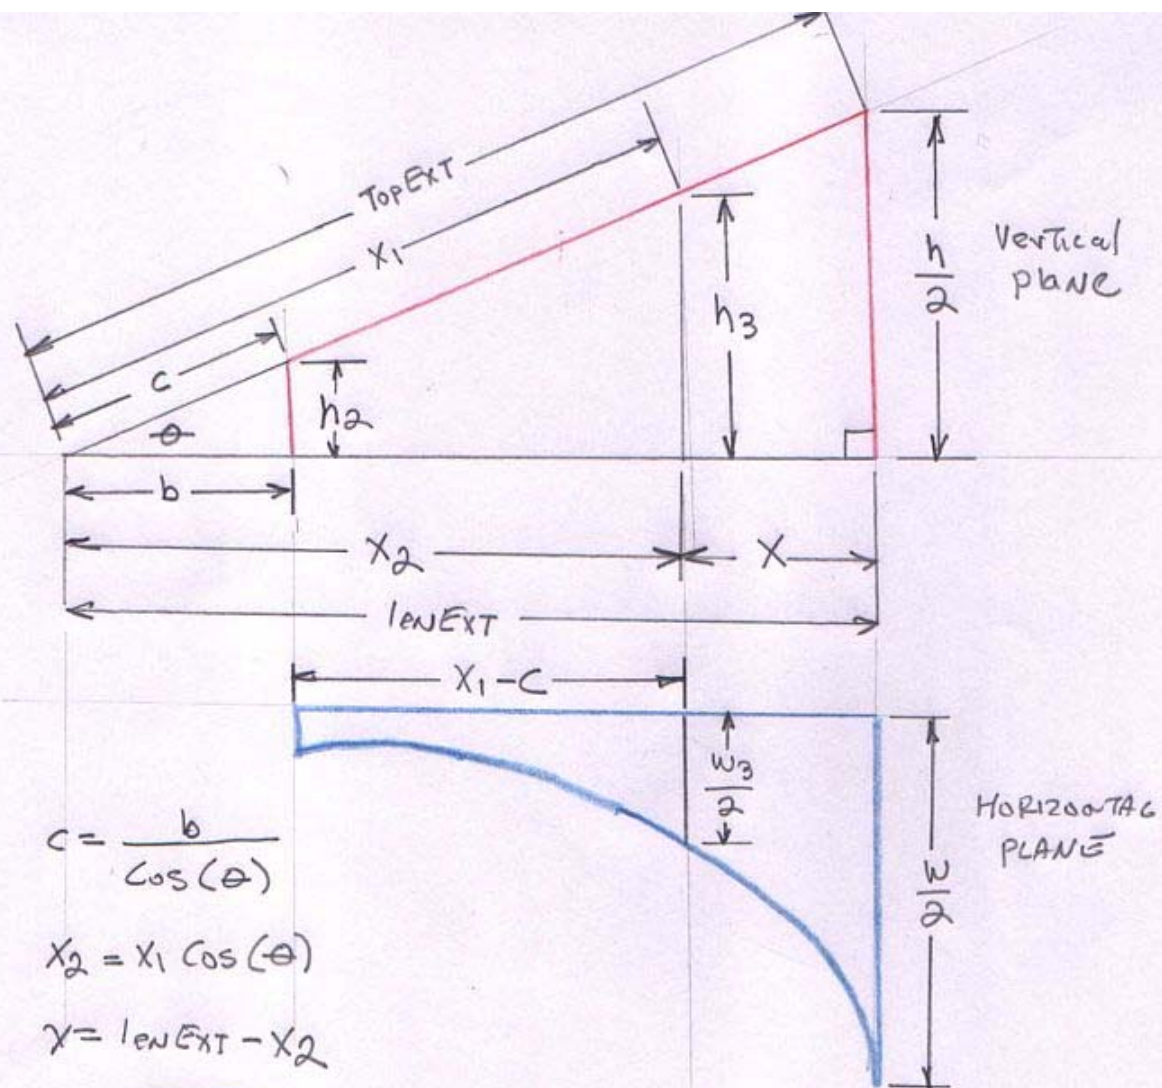 TopExT
X₁
C
θ
h₂
h₃
h/2
Vertical
plane
b
X₂
X
lenExT
X₁-C
w₃/2
w/2
HORIZOOTAG
PLANE
C = b/Cos(θ)
X₂ = X₁ Cos(θ)
X = lenExT - X₂